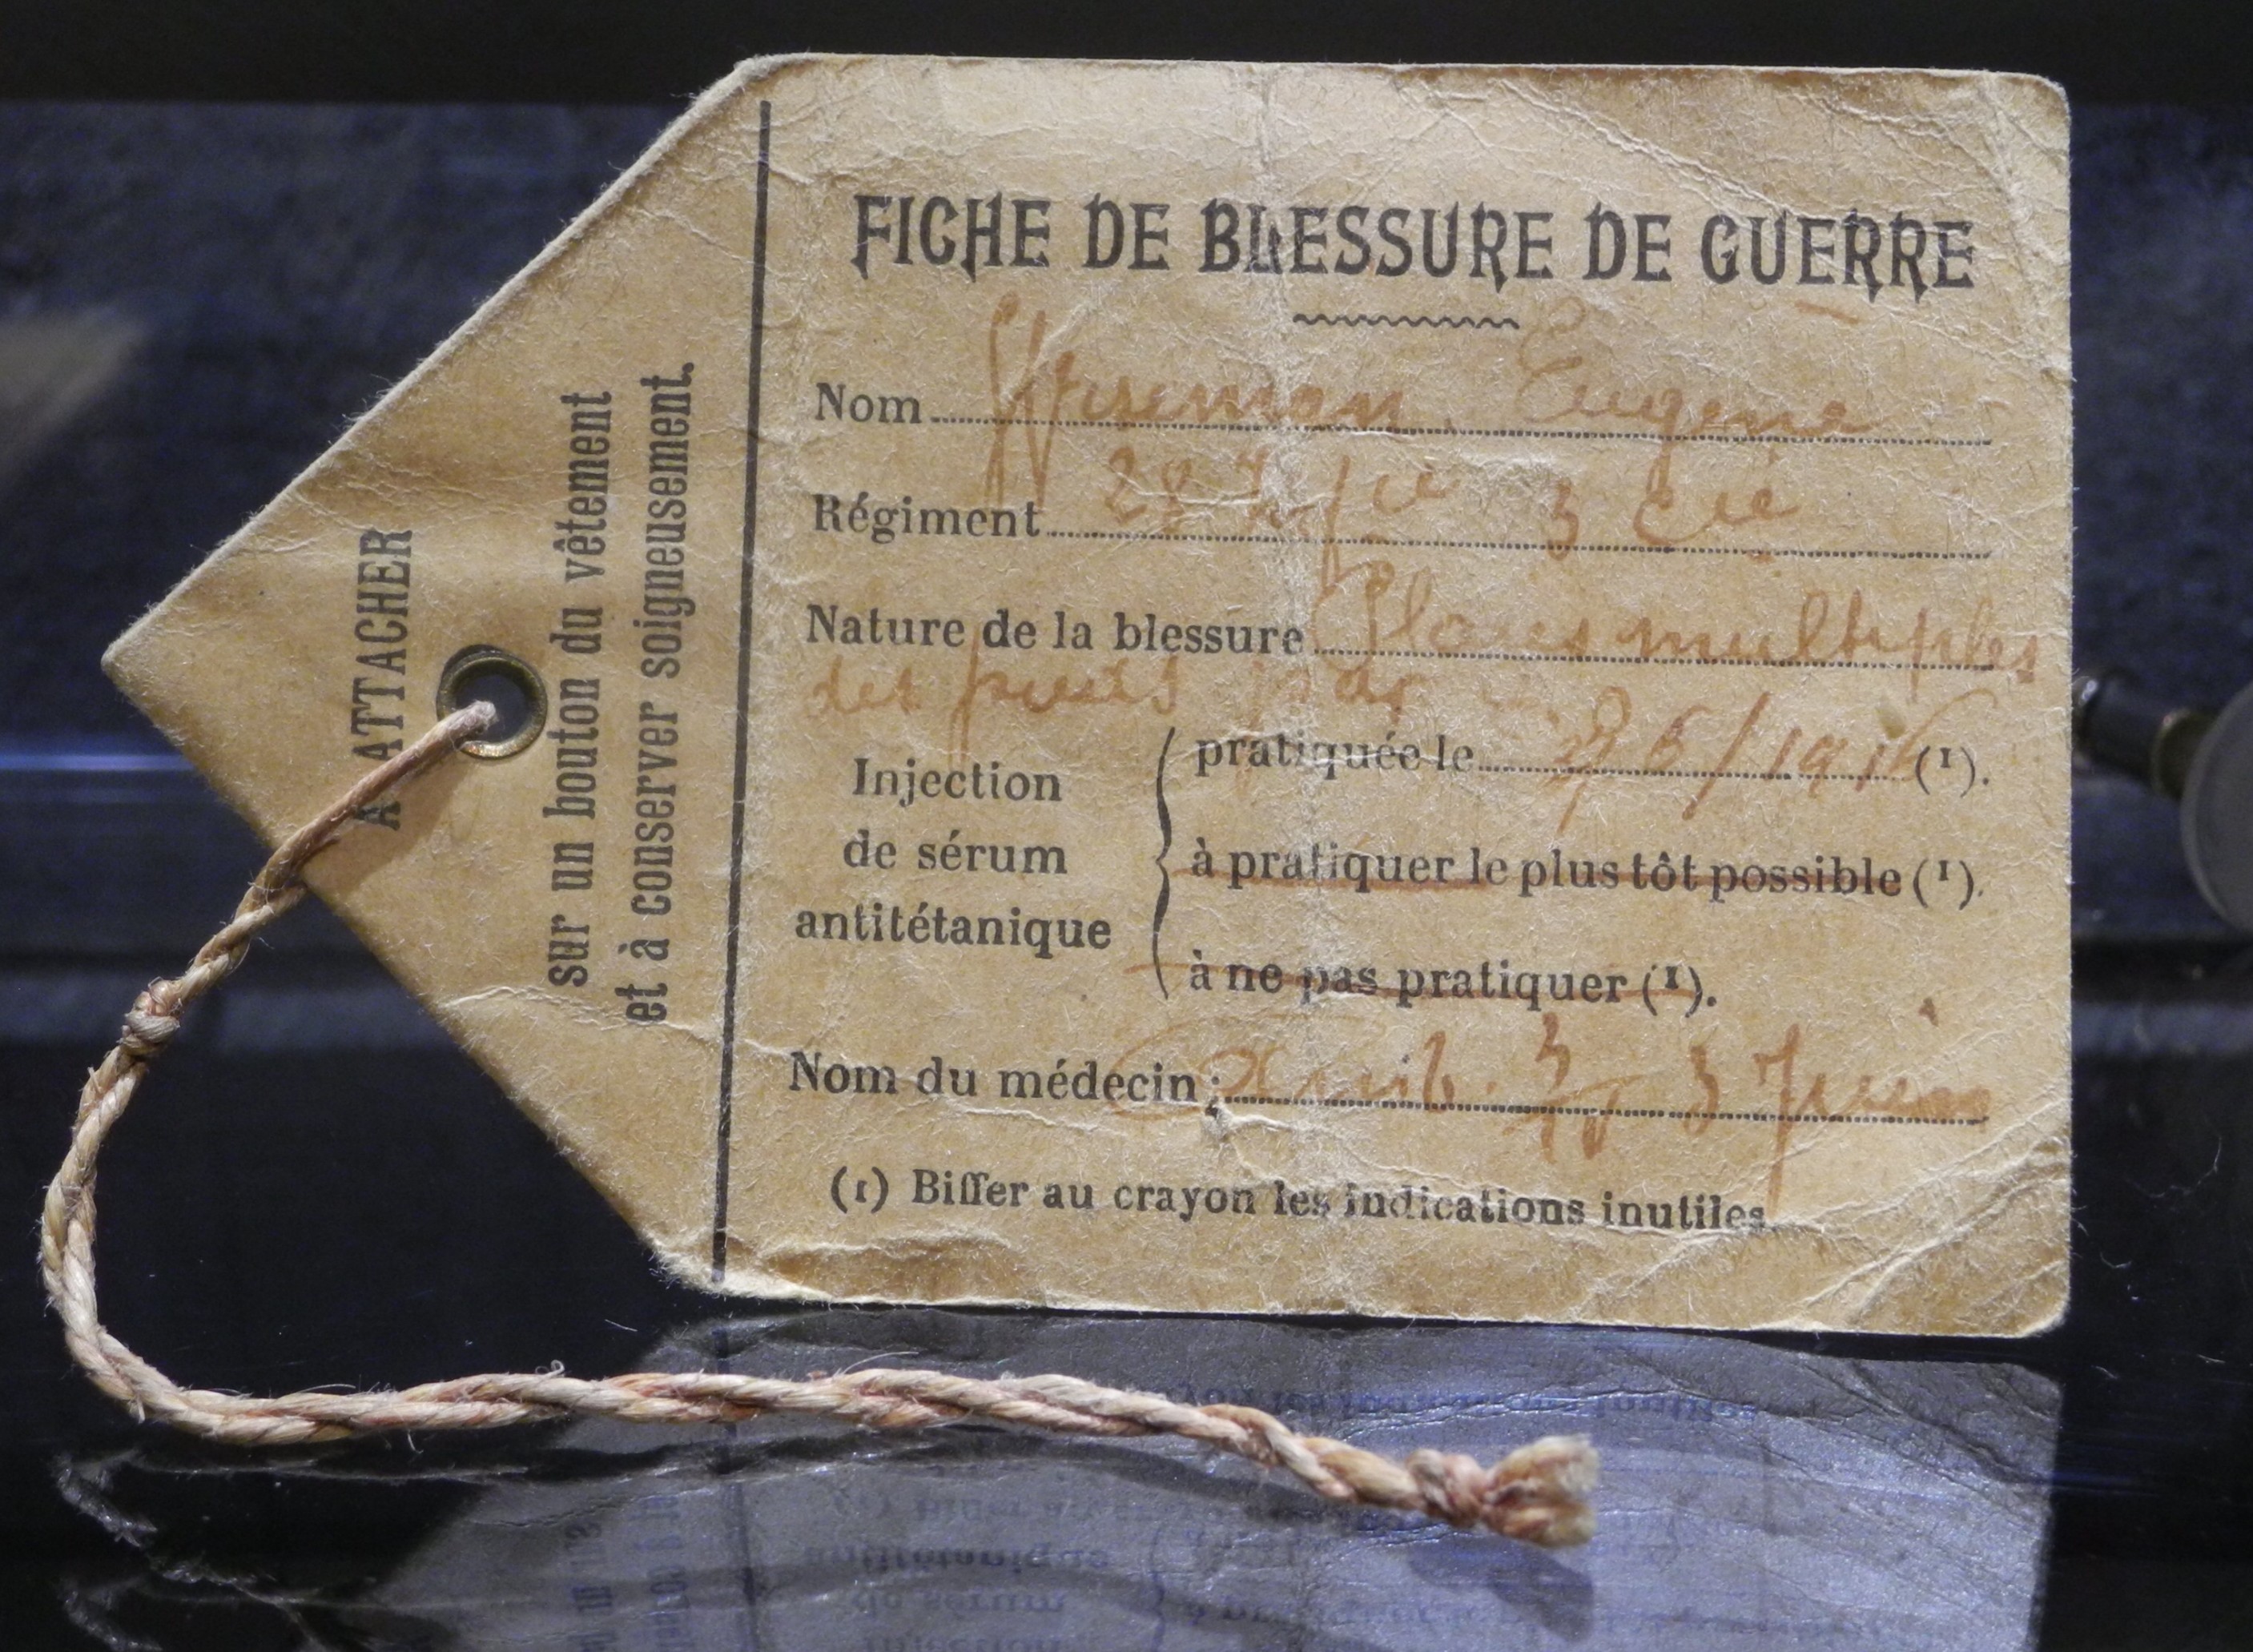 À ATTACHER
sur un bouton du vêtement
et à conserver soigneusement.
FICHE DE BLESSURE DE GUERRE
Nom Eugène
Régiment 287 3 Cie
Nature de la blessure Plaies multiples
des par
Injection
de sérum
antitétanique
pratiquée le 6/1916 (1).
à pratiquer le plus tôt possible (1).
à ne pas pratiquer (1).
Nom du médecin: 3 Juin
(1) Biffer au crayon les indications inutiles.